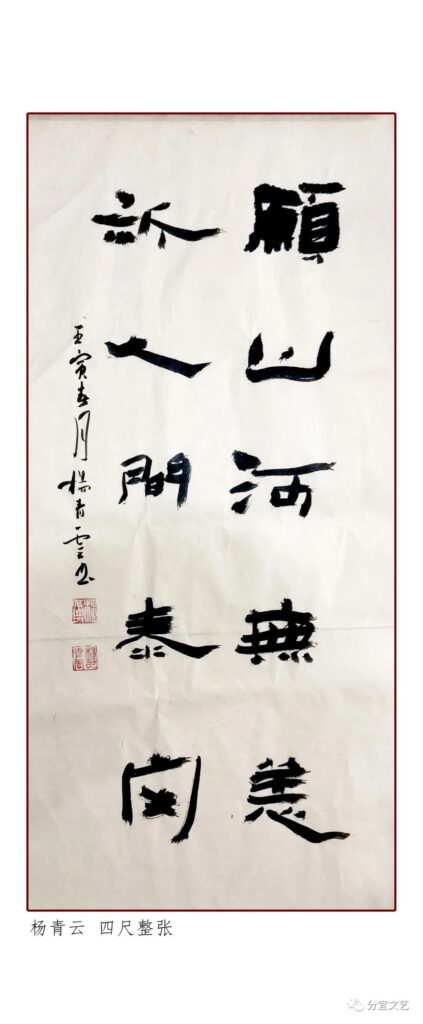 願山河無恙
祈人間泰
壬寅春月楊青雲書
杨青云 四尺整张
分宜文艺